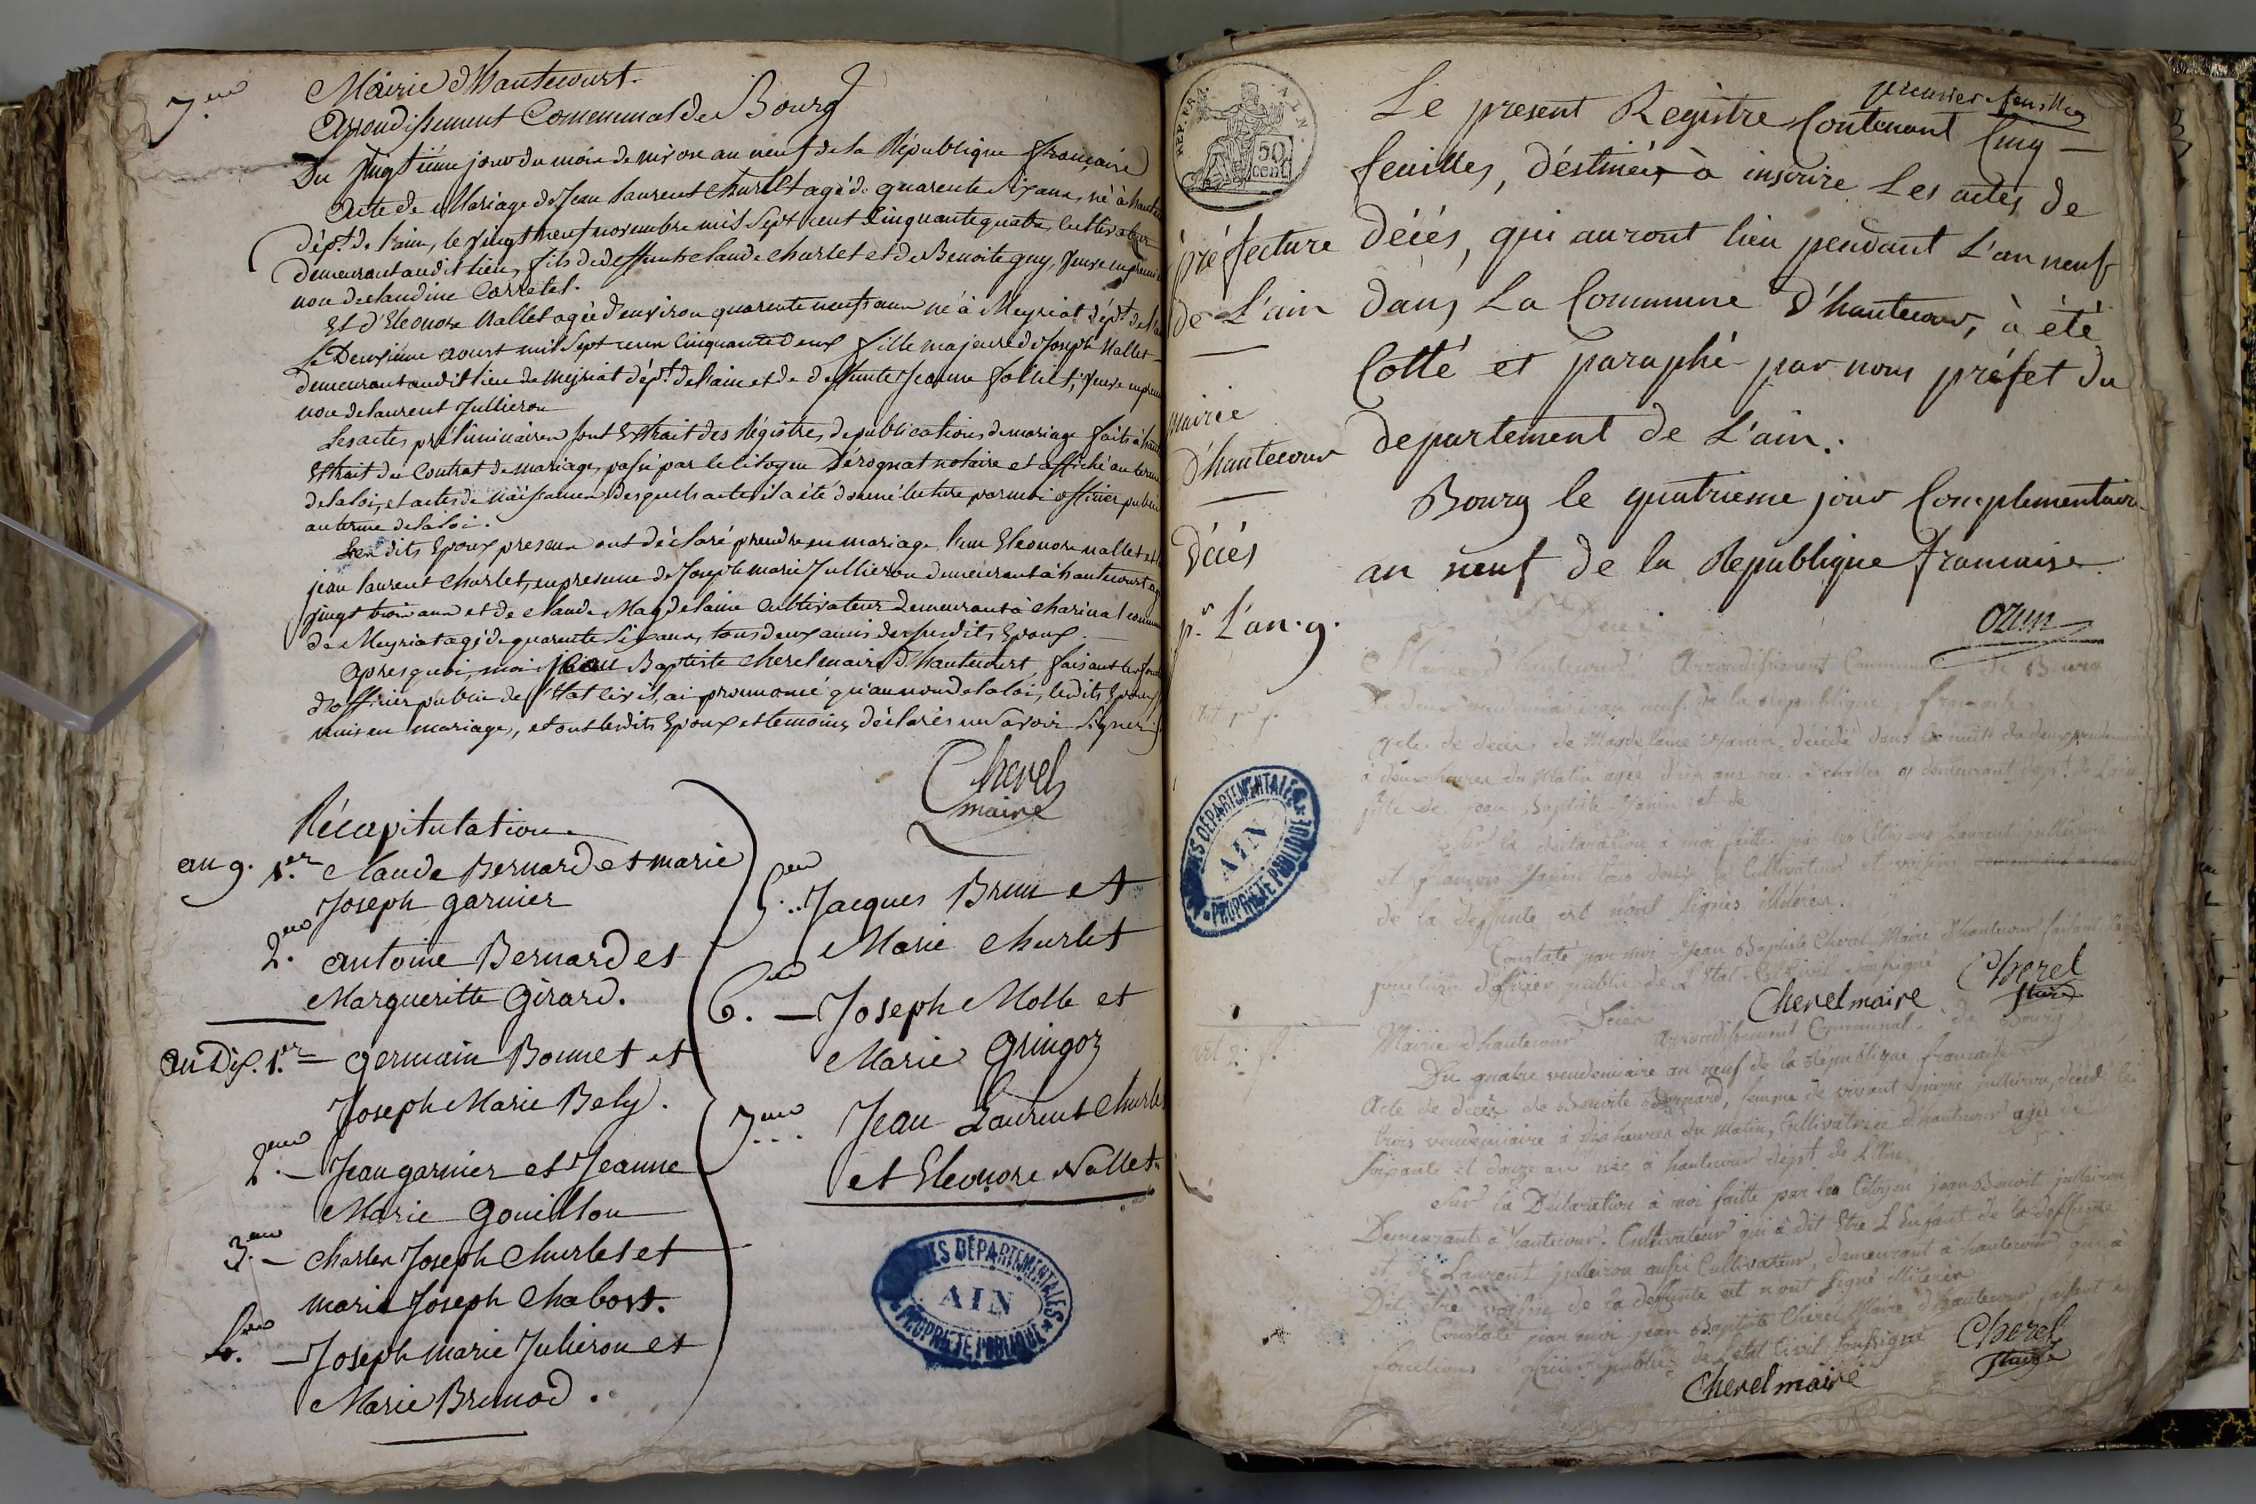 7.me
Mairie d'hautecourt.
Arrondissement Communal de Bourg
Du Vingtième jour du mois de nivose an neuf de la République française
Acte de Mariage de Jean Laurent Churlet agé de quarente six ans, né à
dépt. de l'ain, le vingt neuf novembre mil sept cent cinquante quatre, Cultivateur
demeurant audit lieu, fils de deffunt Claude Churlet et de Benoite guy, veuf en
nou de claudine Corretel.
Et d'Eleonore Nallet agée d'environ quarente neuf ans né à Meyriat dépt. de l'
le Deuxième aoust mil sept cent cinquante deux fille majeure de Joseph Nallet
demeurant audit lieu de Meyriat dépt. de l'ain et de deffunte Jeanne follict, veuve en
nou de laurent Jullieron
Les actes préliminaires sont Extrait des Régistres de publications de mariage faits à
Extrait du Contrat de mariage, passé par le Citoyen Dérognat notaire et affiché au
de la loi, et actes de Naissances desquels actes il a été donné lecture par moi officier public
au terme de la loi.
Les dits Epoux presens ont déclaré prendre en mariage l'un Eleonore nallet et l'
jean laurent Churlet, en presence de Joseph marie Jullieron demeurant à hautecourt agé
vingt trois ans et de claude Magdelaine Cultivateur demeurant à Charinal
de Meyriat agé de quarente six ans, tous deux amis des susdits Epoux.
apres quoi, moi jean Baptiste Cherel maire d'hautecourt, faisant les
d'officier public de l'Etat civil, ai prononcé qu'au nom de la loi, lesdits Epoux
unis en mariage, et ont lesdits Epoux et temoins déclarés ne savoir signer
Cherel
maire
Récapitulation
an 9. 1.er Claude Bernard et marie
Joseph garnier
2.me antoine Bernard et
Margueritte Girard.
an Dix. 1.er = germain Bonnet et
Joseph Marie Bely.
2.me — Jean garnier et Jeanne
Marie Gouillon
3.me — Charles Joseph Churlet et
marie Joseph Chabost.
4.me — Joseph marie Julieron et
Marie Brunod.
5.me .. Jacques Brun et
Marie Churlet
6.me — Joseph Molle et
Marie Gringoz
7.me ... Jean Laurent Churlet
et Eleonore Nallet.
ARCHIVES DÉPARTEMENTALES
AIN
PROPRIÉTÉ PUBLIQUE
REP. FRA. AIN.
50 cent.
préfecture
de L'ain
mairie
D'hautecour
Décés
pr. L'an. 9.
premier feuillet
Le present Registre Contenant Cinq
feuilles, déstinées à inscrire Les actes de
Décés, qui auront lieu pendant L'an neuf
dans La Commune D'hautecour, à été
Cotté et Paraphé par nous préfet du
departement de L'ain.
Bourg le quatrieme jour Complementaire
an neuf de la Republique francaise
ozun
Mairie d'hautecour Arrondissement Communal de Bourg
Du deux vendemiaire an neuf de la république française
acte de décès de Magdelaine Janin, décédé dans la nuit du deux
à deux heures du Matin agée d'un ans née à et demeurant dépt. de L'ain
fille de jean Baptiste Janin et de
Sur la déclaration à moi faitte par les Citoyens Laurent
et françois Janin tous deux Cultivateur et
de la deffunte et nont signés illitérés.
Constaté par moi Jean Baptiste Cherel Maire d'hautecour faisant les
fonctions d'officier public de L'Etat Civil soussigné
Cherel maire
Cherel
maire
ARCHIVES DÉPARTEMENTALES
AIN
PROPRIÉTÉ PUBLIQUE
Mairie d'hautecour Arrondissement Communal de Bourg
Du quatre vendemiaire an neuf de la République francaise
Acte de décès de Benoite Bernard, femme de vivant pierre jullieron, décédé le
trois vendemiaire à dix heures du matin, Cultivatrice d'hautecour agée de
soixante et douze an née à hautecour dépt. de L'ain
Sur la Déclaration à moi faitte par les Citoyens jean Benoit jullieron
Demeurant à hautecour Cultivateur qui à dit être L'Enfant de la deffunte
et de Laurent jullieron aussi Cultivateur, demeurant à hautecour qui à
Dit être voisin de la deffunte et n'ont signé illiterés
Constaté par moi jean Baptiste Cherel Maire d'hautecour faisant les
fonctions d'officier public de L'etat Civil soussigné
Cherel maire
Cherel
maire